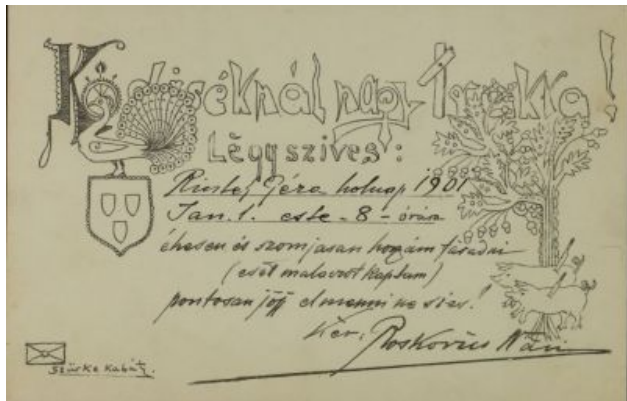 K diséknál nagy T kka!
Légy szives:
Géza holnap 1901
Jan. 1. este - 8 - órára
éhesen és szomjasan hozzám fáradni
(esét malaczot kaptam)
pontosan jőjj elmenni ne siess!
Roskovics Náci
Szürke Kabát.